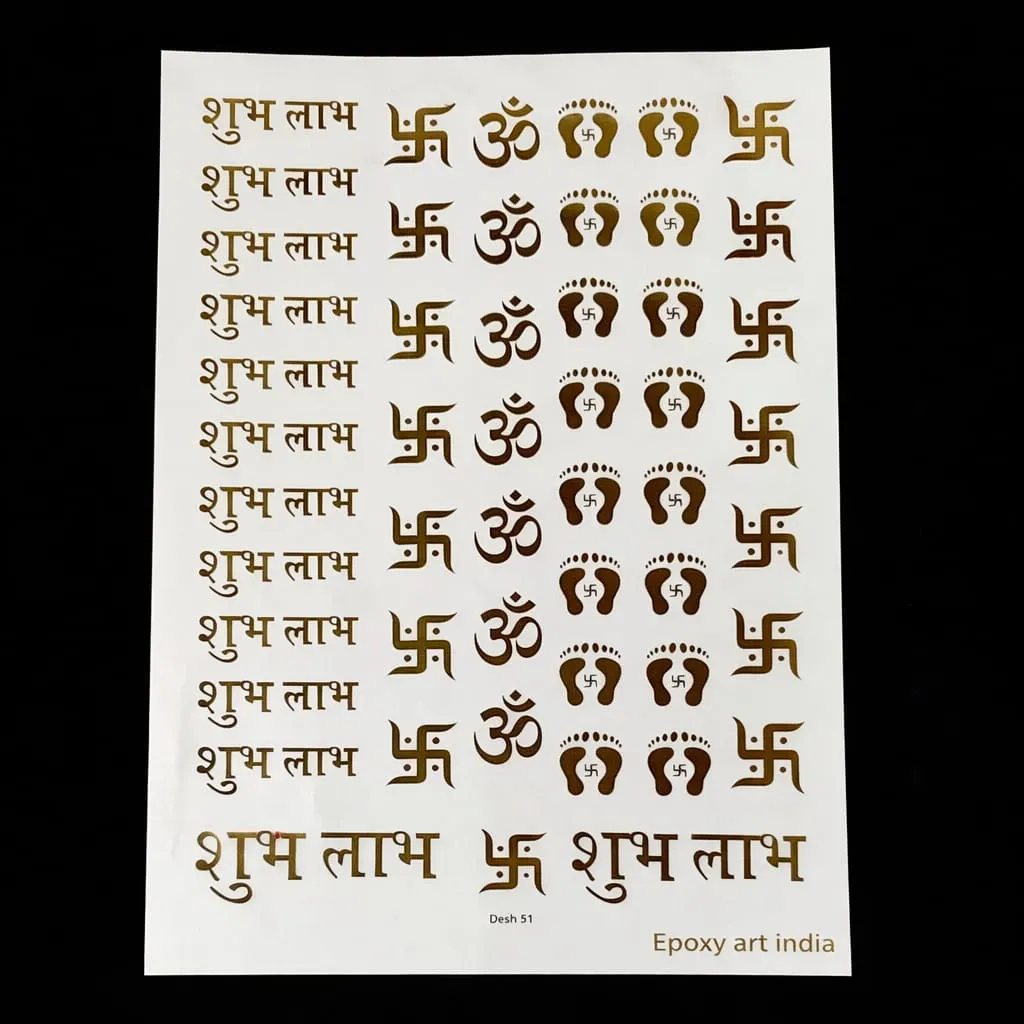 शुभ लाभ ॐ
शुभ लाभ ॐ
शुभ लाभ
शुभ लाभ ॐ
शुभ लाभ
शुभ लाभ ॐ
शुभ लाभ ॐ
शुभ लाभ
शुभ लाभ ॐ
शुभ लाभ
शुभ लाभ ॐ
शुभ लाभ शुभ लाभ
Desh 51
Epoxy art india